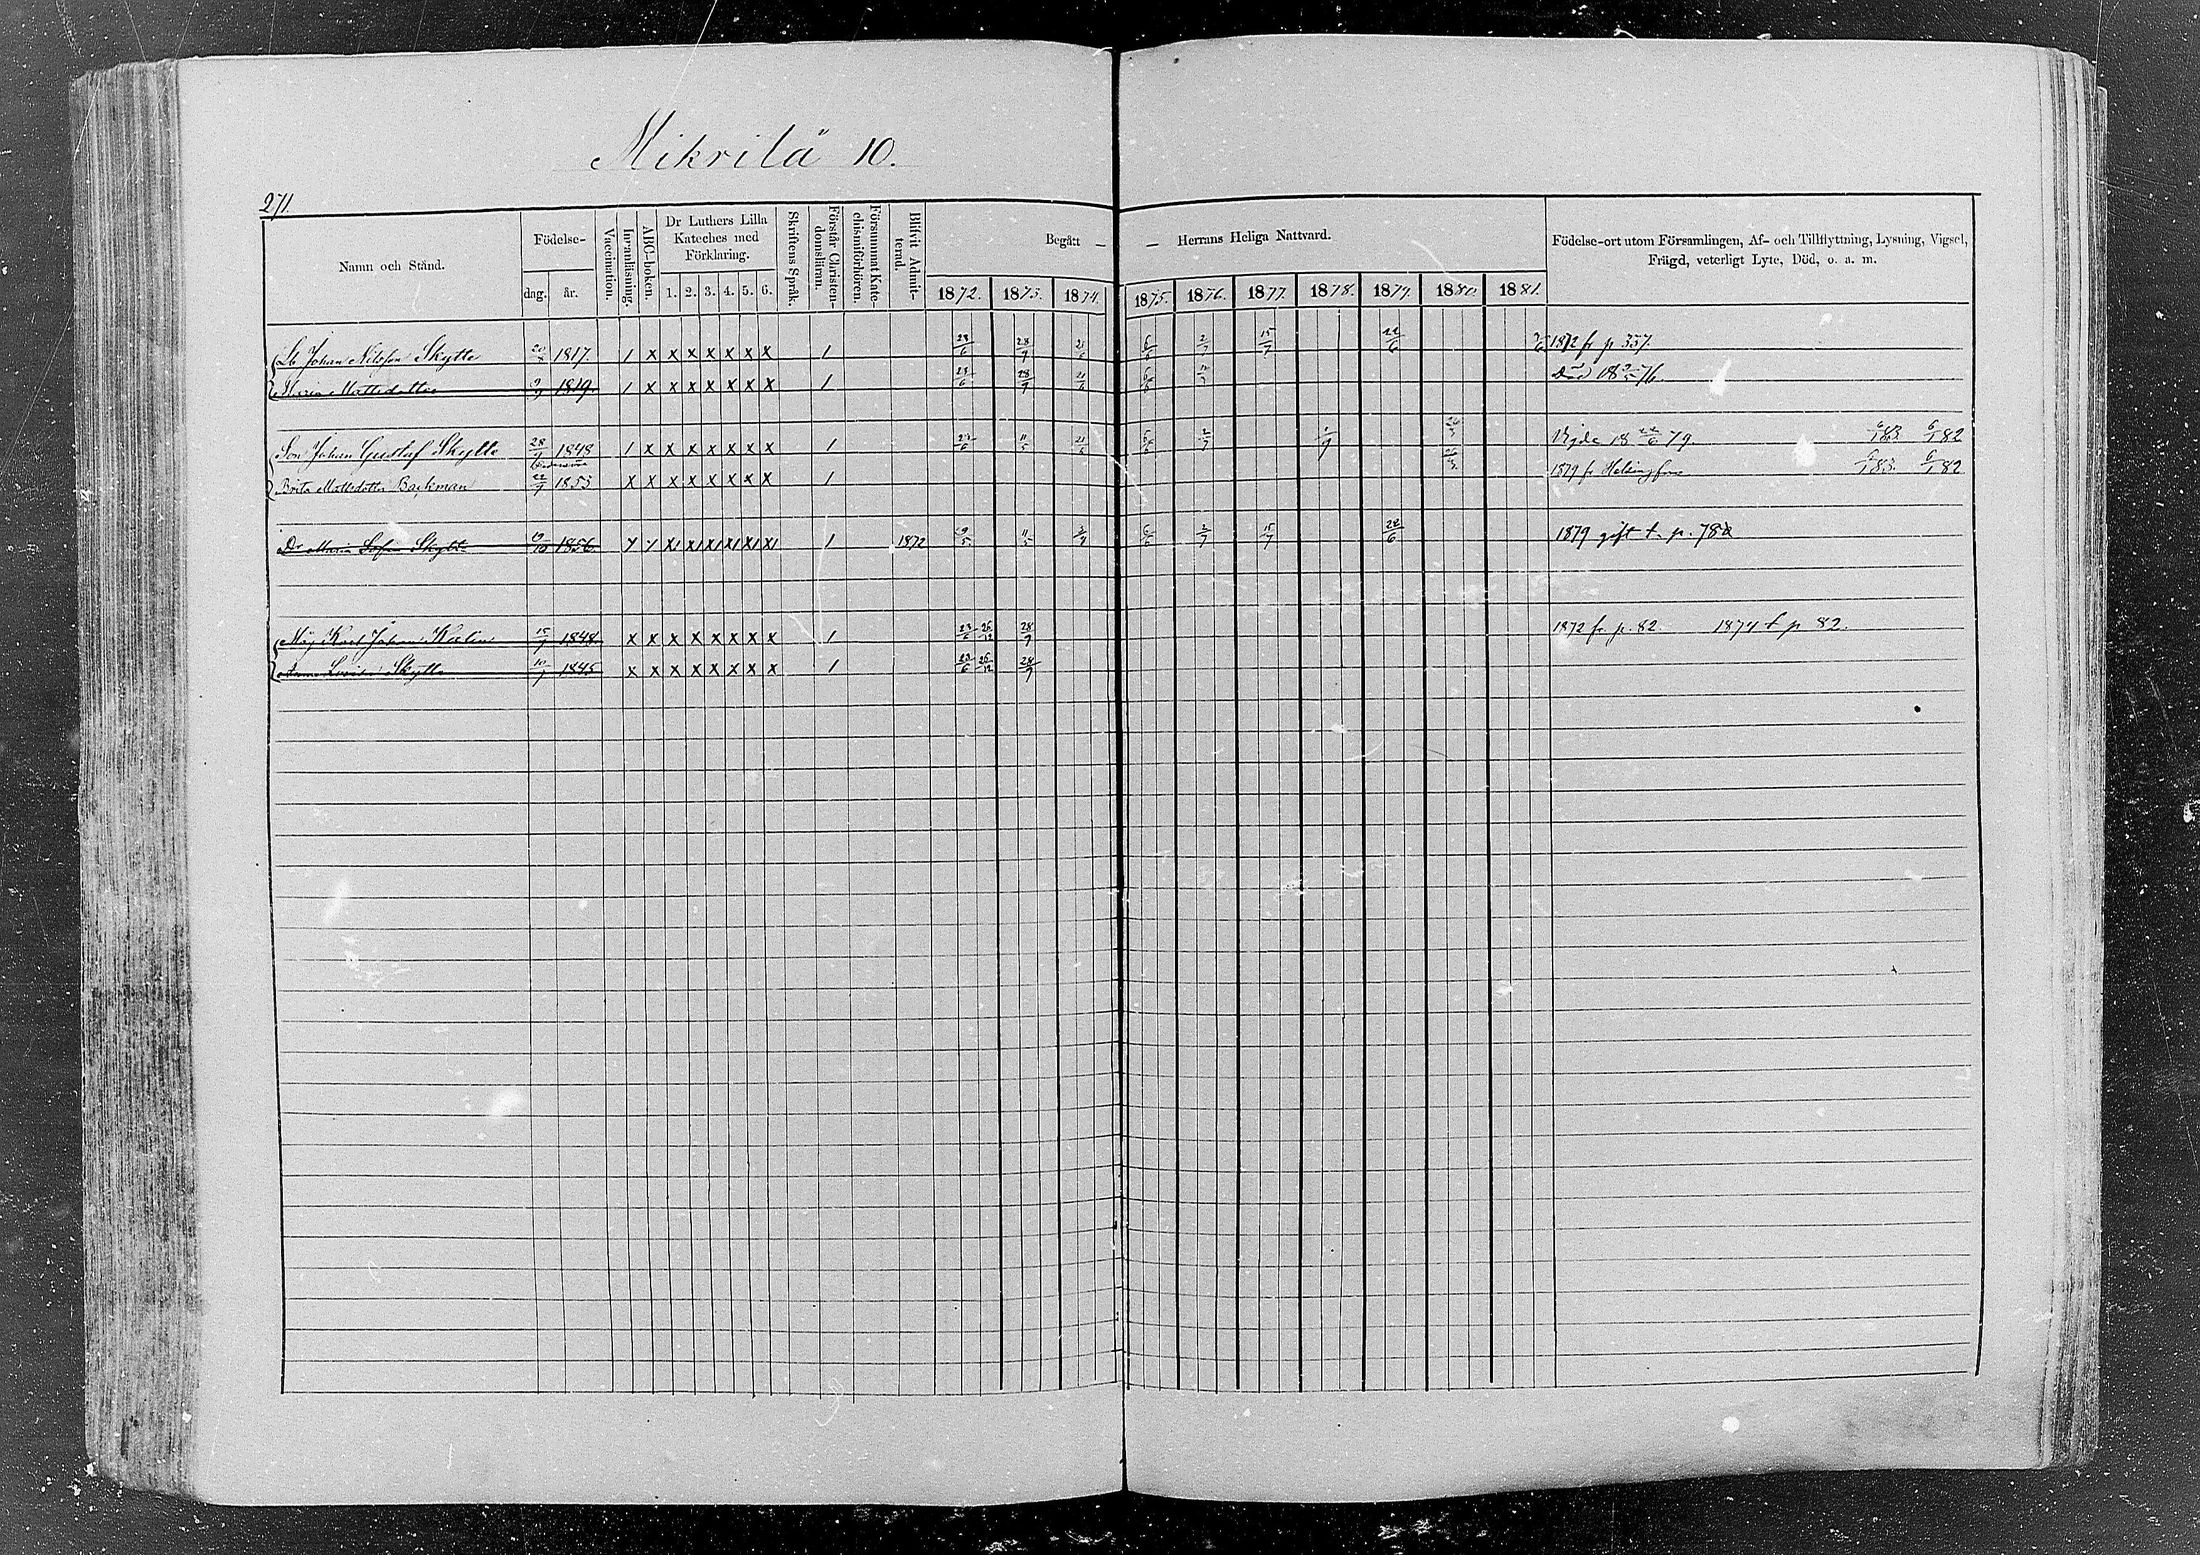 Mikrilä 10.
271.
Namn och Stånd. Födelse- dag. år. Vaccination. Innanläsning. ABC-boken. Dr Luthers Lilla Kateches med Förklaring. 1. 2. 3. 4. 5. 6. Skriftens Språk. Förstår Christen-domslärän. Försummat Kate-chismiförhören. Blifvit Admit-terad. Begått — — Herrans Heliga Nattvard. 1872. 1873. 1874. 1875. 1876. 1877. 1878. 1879. 1880. 1881. Födelse-ort utom Församlingen, Af- och Tillflyttning, Lysning, Vigsel, Frägd, veterligt Lyte, Död, o. a. m.
Johan Nilsson Skytte 1817. 1 x x x x x x x x 1 23/6 28/9 21/6 6/6 2/7 15/7 22/6 1872 fr p 337.
Maria Mattsdotter 1819. 1 x x x x x x x x 1 23/6 28/9 21/6 6/6 Död 18 76.
Son Johan Gustaf Skytte 28/9 1848 1 x x x x x x x x 1 23/6 11/5 21/6 6/6 2/7 Vigde 18 22/6 79. 6/1 83. 6/1 82
Brita Mattsdotter Backman 22/9 1853 x x x x x x x x x 1 1879 fr Helsingfors 6/1 83. 6/1 82
Dr Maria Sofia Skytte 1856 1 1872 9/5 11/5 6/6 2/7 15/7 22/6 1879 gift t. p. 78
Måg Karl Johan 15/9 1848 x x x x x x x x x 1 23/6 26/12 28/9 1872 fr. p. 82. 1874 t p 82.
Anna Lovisa Skytte 10/7 1845 x x x x x x x x x 1 23/6 26/12 28/9